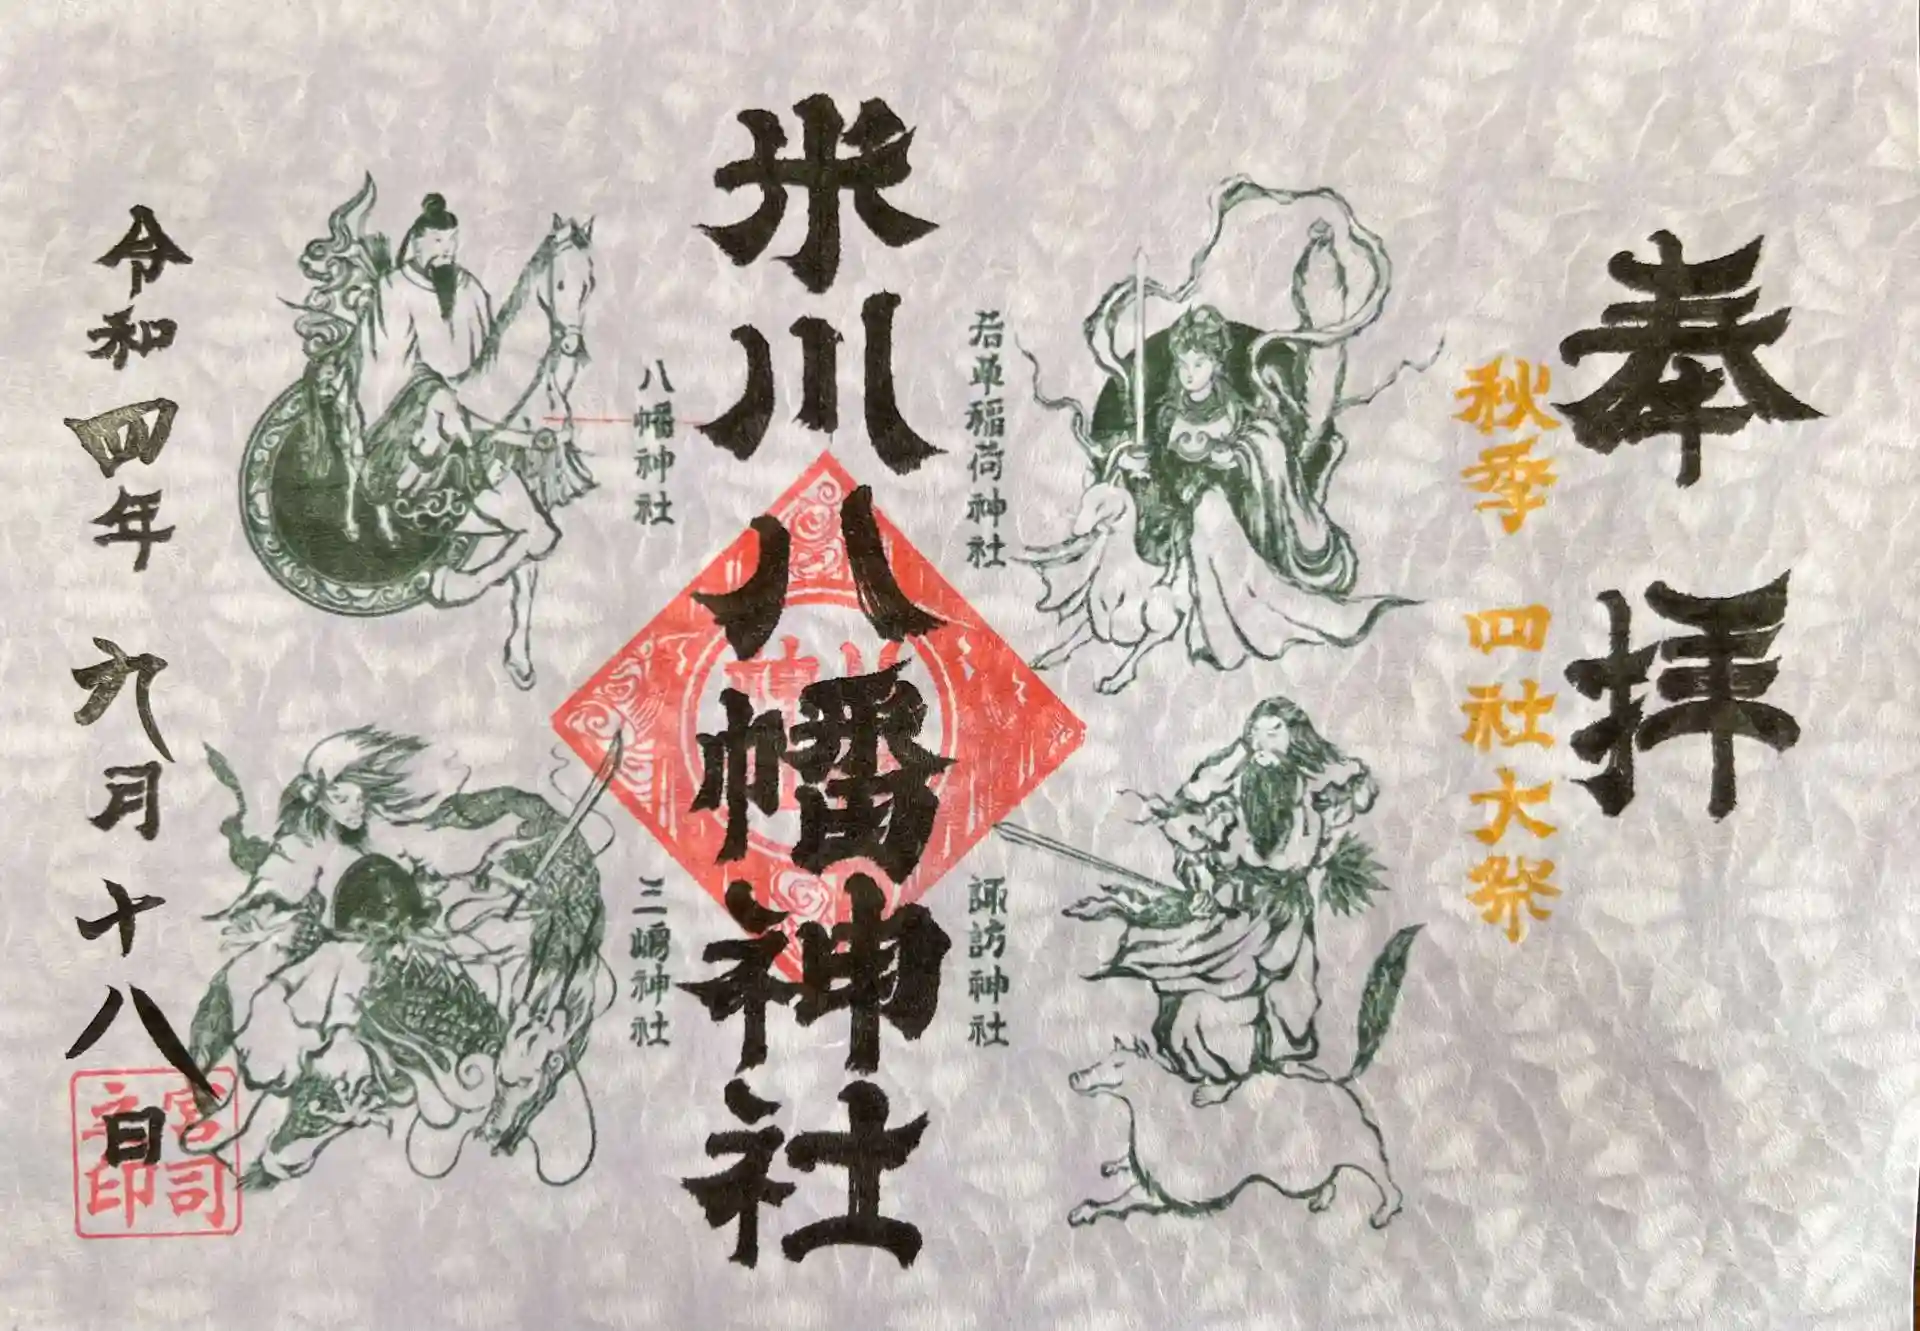 奉拝
秋季 四社大祭
若草稲荷神社
諏訪神社
米川八幡神社
八幡神社
三嶋神社
令和四年九月十八日
宮司
之印